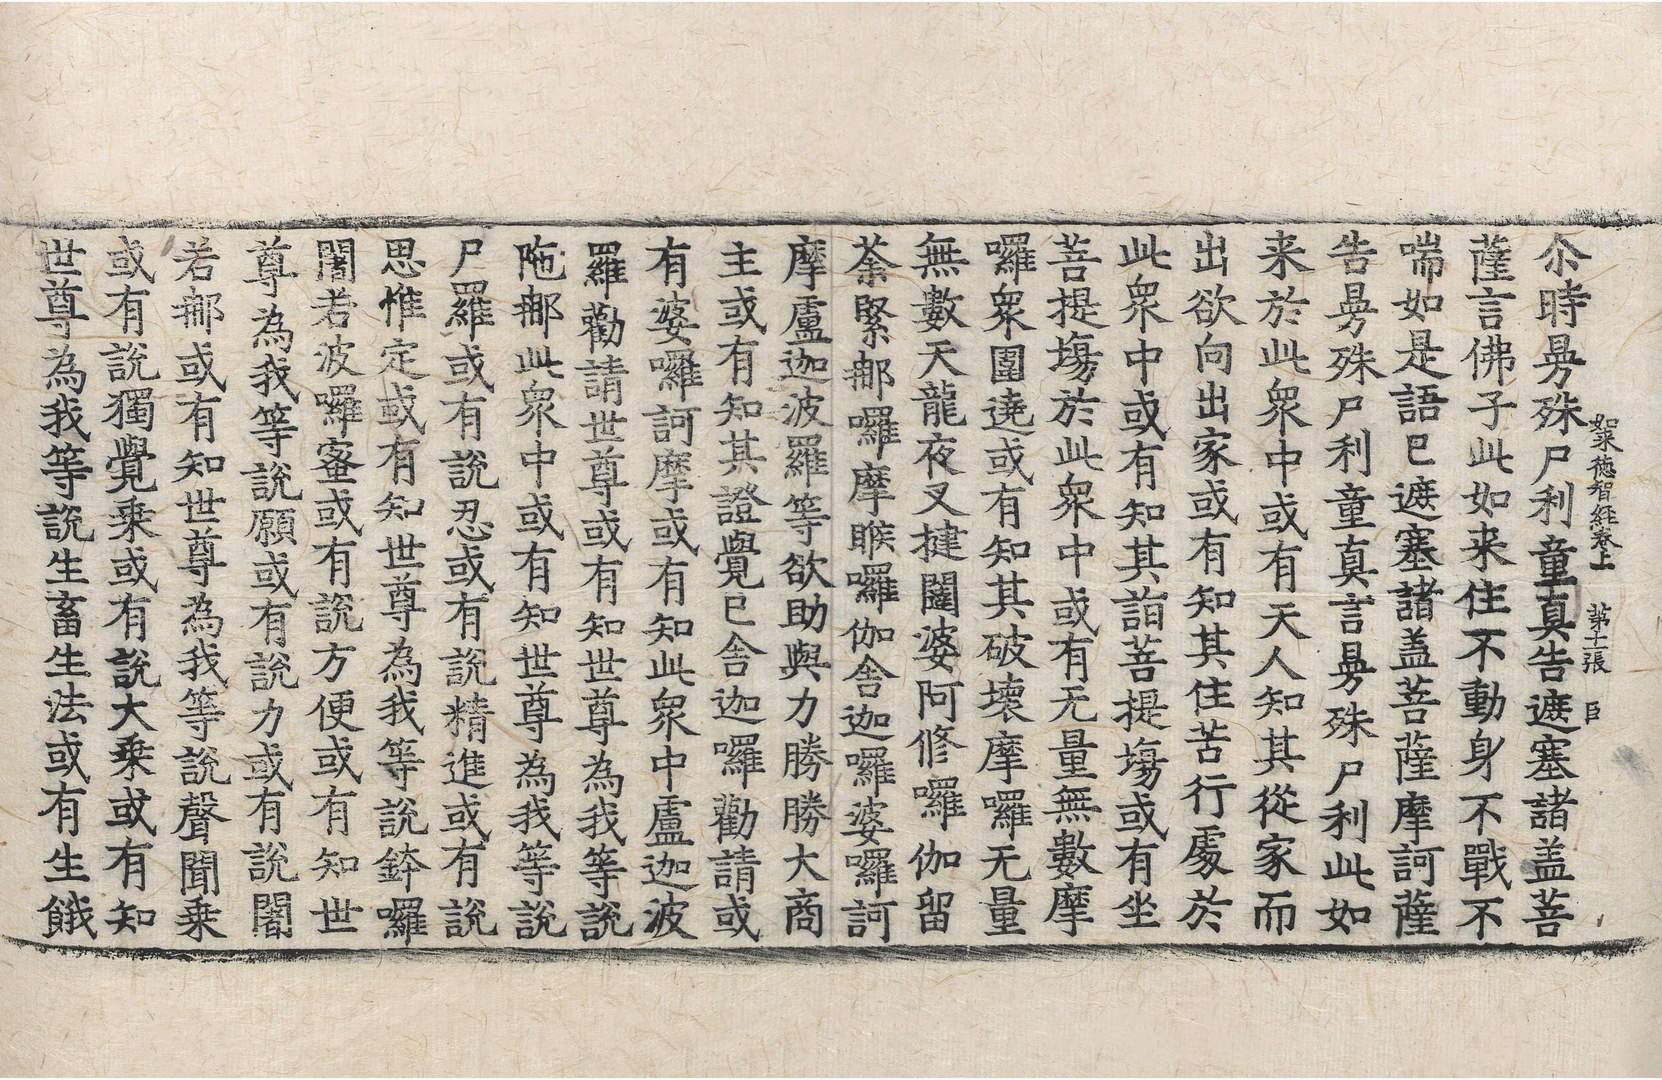 如來德智經卷上 第十二張 臣
尒時㬅殊尸利童真告遮塞諸盖菩
薩言佛子此如来住不動身不戰不
喘如是語已遮塞諸盖菩薩摩訶薩
告㬅殊尸利童真言㬅殊尸利此如
来於此衆中或有天人知其從家而
出欲向出家或有知其住苦行處於
此衆中或有知其詣菩提場或有坐
菩提場於此衆中或有无量無數摩
囉衆圍遶或有知其破壞摩囉无量
無數天龍夜叉揵闥婆阿修囉伽留
荼緊那囉摩睺囉伽舍迦囉婆囉訶
摩盧迦波羅等欲助與力勝勝大商
主或有知其證覺已舍迦囉勸請或
有婆囉訶摩或有知此衆中盧迦波
羅勸請世尊或有知世尊為我等說
陁那此衆中或有知世尊為我等說
尸羅或有說忍或有說精進或有說
思惟定或有知世尊為我等說鉢囉
闍若波囉蜜或有說方便或有知世
尊為我等說願或有說力或有說闍
若那或有知世尊為我等說聲聞乘
或有說獨覺乘或有說大乘或有知
世尊為我等說生畜生法或有生餓